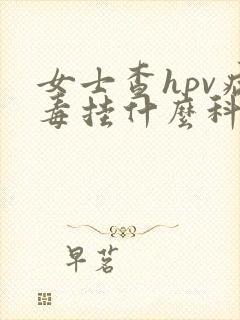 女士查hpv病
毒挂什麼科
早茗